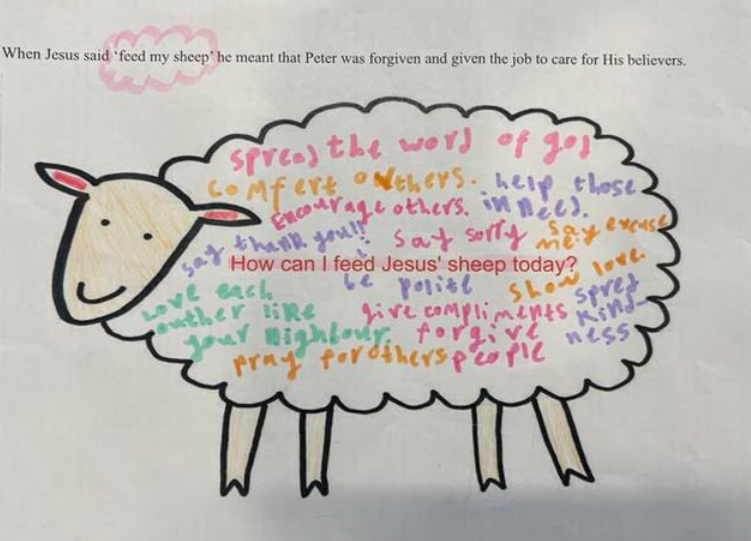 When Jesus said 'feed my sheep' he meant that Peter was forgiven and given the job to care for His believers.
spread the word of god
comfert outhers. help those
in need.
Encourage others.
say thank you!!
say sorry
say excuse
me
How can I feed Jesus' sheep today?
be polite
show love.
Love each
outher like
your nighbour.
give compliments
spred
kind-
ness
forgive
people
pray for others